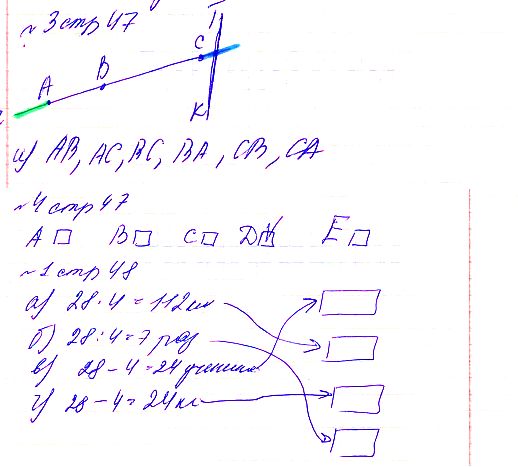 №3 стр 47
T
C
B
A
K
а) AB, AC, BC, BA, CB, CA
№4 стр 47
A B C D E
№1 стр 48
а) 28·4=112
б) 28:4=7 раз
в) 28-4=24
г) 28-4=24 кг